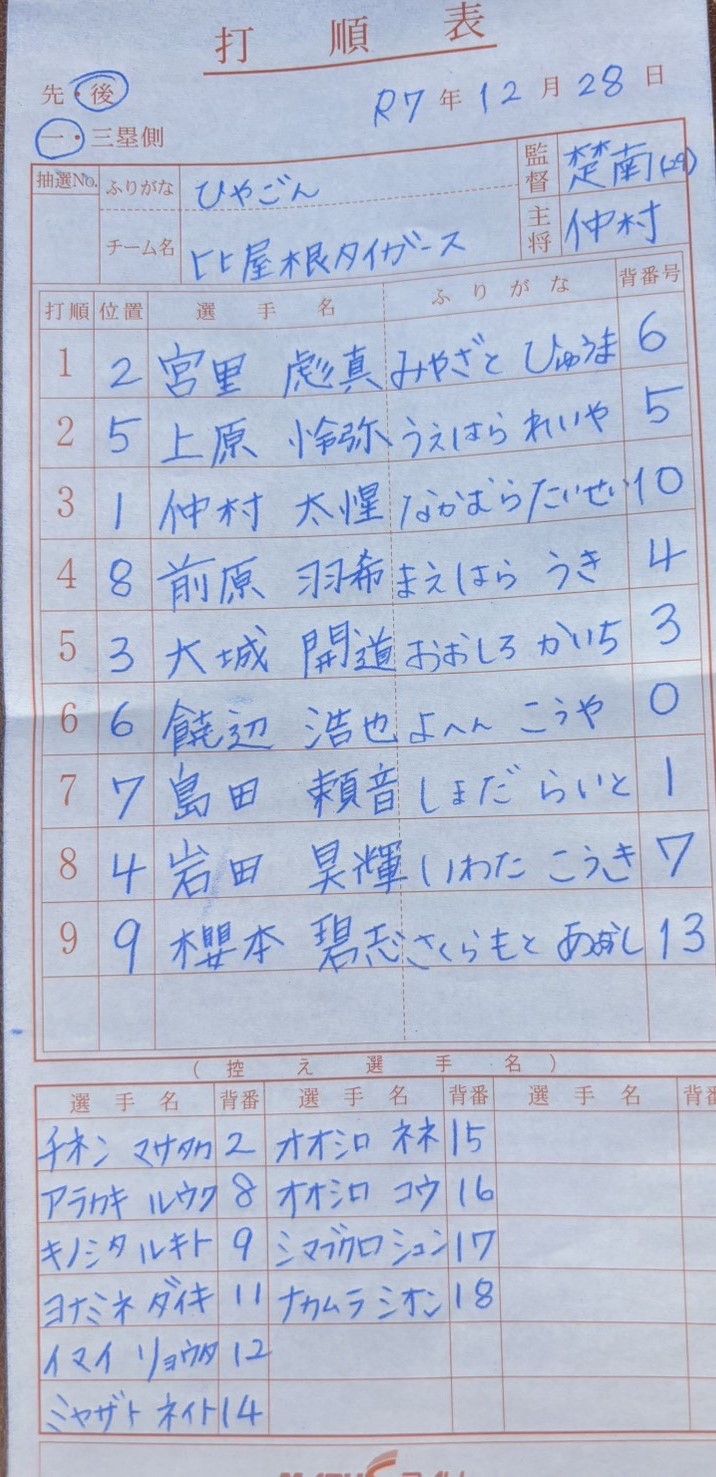 打順表
先・後
R7年12月28日
一・三塁側
抽選No. ふりがな ひやごん 監督 楚南(29)
チーム名 比屋根タイガース 主将 仲村
打順 位置 選手名 ふりがな 背番号
1 2 宮里 彪真 みやざと ひゅうま 6
2 5 上原 怜弥 うえはら れいや 5
3 1 仲村 太惺 なかむら たいせい 10
4 8 前原 羽希 まえはら うき 4
5 3 大城 開道 おおしろ かいち 3
6 6 饒辺 浩也 よへん こうや 0
7 7 島田 頼音 しまだ らいと 1
8 4 岩田 昊輝 いわた こうき 7
9 9 櫻本 碧志 さくらもと あおし 13
(控え選手名)
選手名 背番 選手名 背番 選手名 背番
チネン マサタカ 2 オオシロ ネネ 15
アラカキ ルウク 8 オオシロ コウ 16
キノシタ ルキト 9 シマブクロ シュン 17
ヨナミネ ダイキ 11 ナカムラ シオン 18
イマイ リョウタ 12
ミヤザト ネイト 14